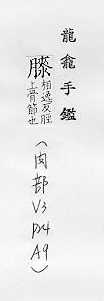 龍龕手鑑
膝相逸反脛上骨節也
(肉部 V3 P24 A9)